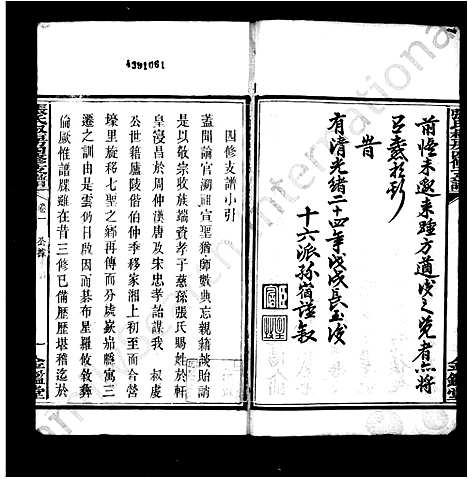 前悟未逮来踵方道後之覽者亦將
有清光緒二十四年戊戌長至後
十六派孫 謹叙
4391061
四修支譜小引
蓋聞論官溯祖宣聖猶師數典忘親籍談貽誚
是以敬宗收族端資孝子慈孫張氏賜姓於軒
皇浸昌於周仲漢唐及宋忠孝詒謀我 叔虞
公世籍廬陵偕伯仲季移家湘上初至而合營
壕里旋移七聖之鄉再傳而分處嶽 縣寓三
遷之訓由是雲仍日啟因而棊布星羅攸敘彝
倫厥惟譜牒雖在昔三修已備歷歷堪稽迄於
四修支譜
卷一
一
金鑑堂